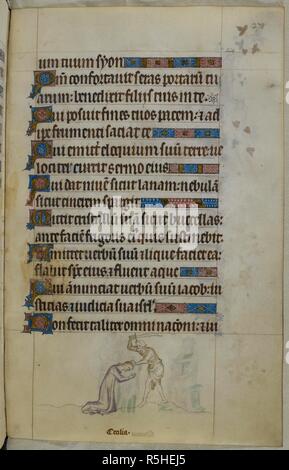 um tuum syon
Qm̄ confortavit seras portarū tu
arum: benedixit filiis tuis in te
Qui posuit fines tuos pacem: ⁊ ad
ipe frumenti saciat te
Qui emittit eloquium suū terre: ve
lociter currit sermo eius
Qui dat nivē sicut lanam: nebulā
sicut cinerem spergit
Mittit cristallū suā sicut bucellas:
ante faciē frigoris ei quis sustinebit
Emittet verbū suū ⁊ liquefaciet ea:
flabit spc̄ eius ⁊ fluent aque
Qui anunciat verbū suū iacob: iu
sticias ⁊ iudicia sua isrl
Non fecit taliter omni nacōni: ⁊ iu
Cecilia
alamy
Image ID: R5HEJ5
www.alamy.com